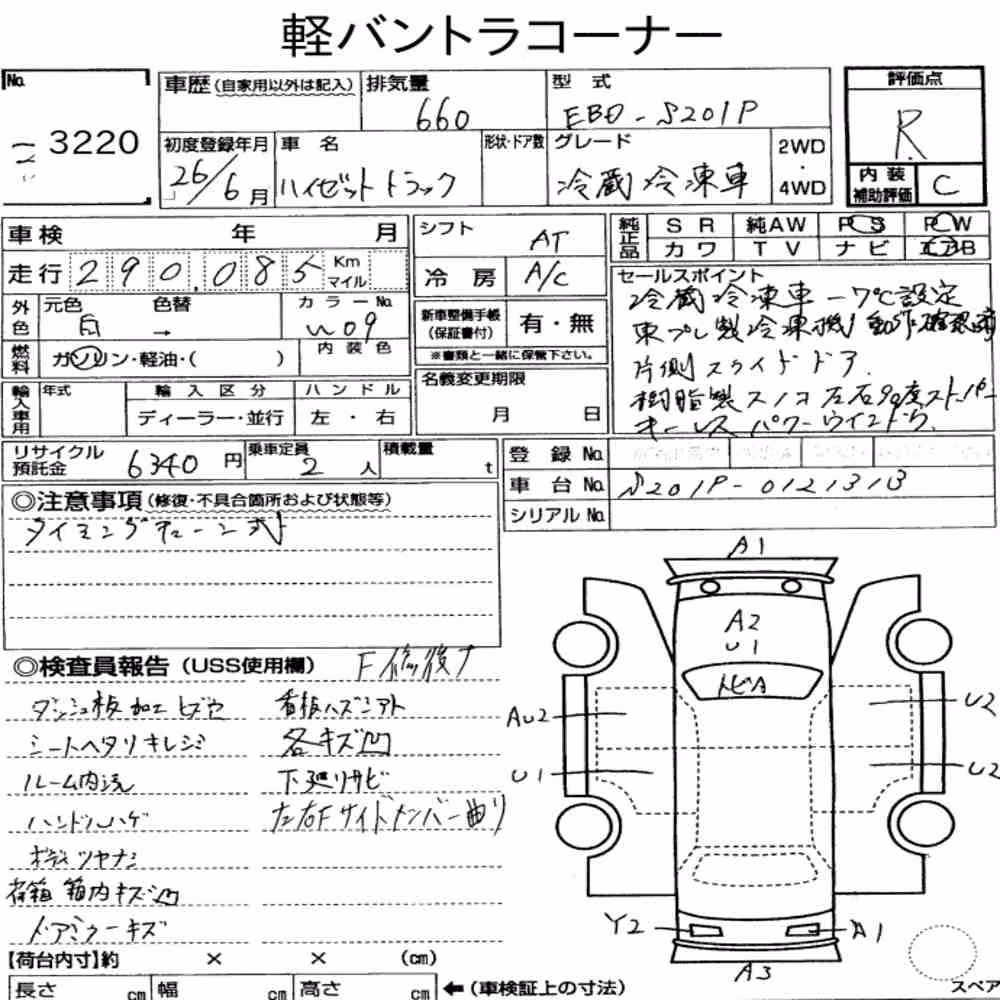 軽バントラコーナー
No.
3220
車歴(自家用以外は記入)
排気量
660
型式
EBD-S201P
評価点
R
初度登録年月
26/6月
車名
ハイゼットトラック
形状・ドア数
グレード
冷蔵冷凍車
2WD
・
4WD
内装
補助評価
C
車検 年 月
シフト
AT
純正品
SR 純AW PS PW
カワ TV ナビ エアB
走行 290,085 Km
マイル
冷房 A/C
セールスポイント
冷蔵冷凍車 -7℃設定
東プレ製冷凍機 動作確認済
片側スライドドア.
樹脂製スノコ 左右90度ストッパー
キーレス パワーウインドウ.
外色
元色
白
色替
→
カラーNo.
W09
新車整備手帳
(保証書付)
有・無
※書類と一緒に保管下さい。
燃料
ガソリン・軽油・( )
内装色
輸入車用
年式
輸入区分
ディーラー・並行
ハンドル
左・右
名義変更期限
月 日
リサイクル
預託金
6340円
乗車定員
2人
積載量
t
登録No.
車台No. S201P-0121313
シリアルNo.
◎注意事項(修復・不具合箇所および状態等)
タイミングチェーン式
◎検査員報告(USS使用欄) F修復ナ
ダッシュ板加工ビス穴 看板ハズシアト
シートヘタリキレジミ 各キズ凹
ルーム内汚 下廻リサビ
ハンドルハゲ 左右Fサイドメンバー曲リ
ボディツヤナシ
荷箱 箱内キズ凹
ドアミラーキズ
【荷台内寸】約 × × (cm)
長さ cm 幅 cm 高さ cm
←(車検証上の寸法)
A1
A2
U1
トビA
AU2
U2
U1
U2
Y2
A1
A3
スペア